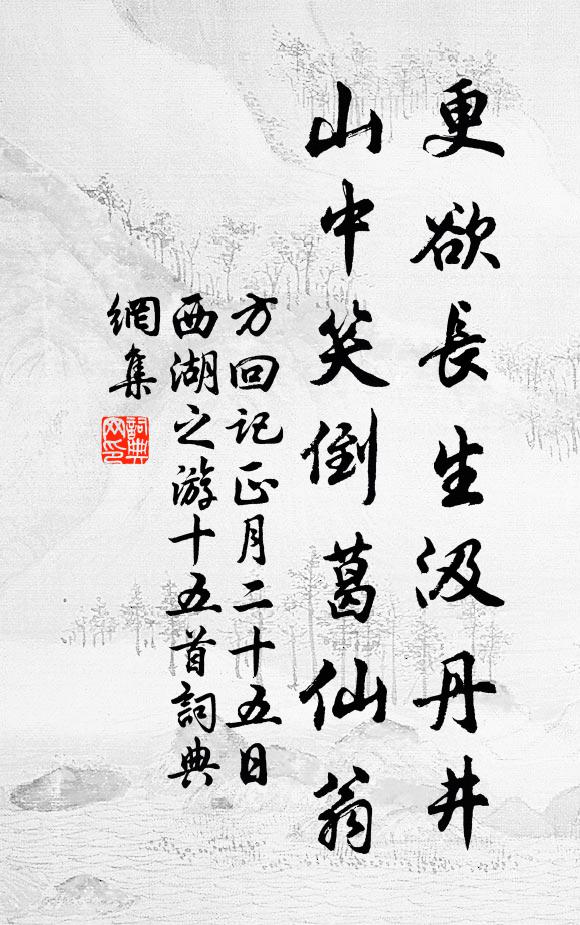 更欲長生汲丹井
山中笑倒葛仙翁
方回记正月二十五日
西湖之游十五首詞典
網集
詞典
网印